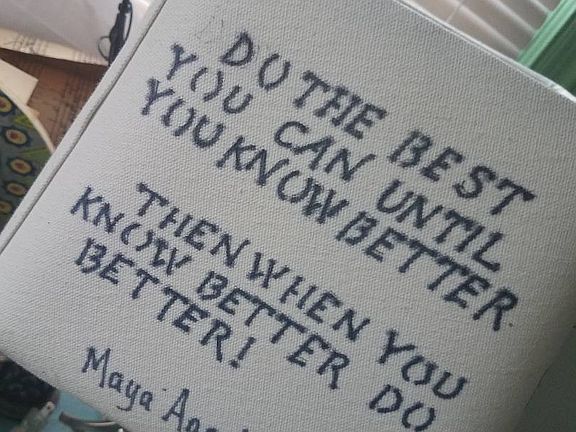 DO THE BEST
YOU CAN UNTIL
YOU KNOW BETTER
THEN WHEN YOU
KNOW BETTER DO
BETTER!
Maya